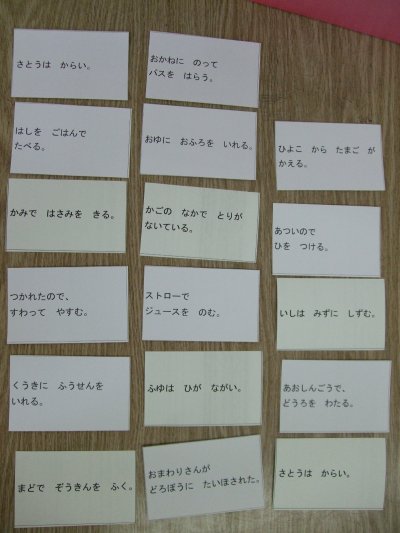 さとうは からい。
おかねに のって
バスを はらう。
はしを ごはんで
たべる。
おゆに おふろを いれる。
ひよこ から たまご が
かえる。
かみで はさみを きる。
かごの なかで とりが
ないている。
あついので
ひを つける。
つかれたので、
すわって やすむ。
ストローで
ジュースを のむ。
いしは みずに しずむ。
くうきに ふうせんを
いれる。
ふゆは ひが ながい。
あおしんごうで、
どうろを わたる。
まどで ぞうきんを ふく。
おまわりさんが
どろぼうに たいほされた。
さとうは からい。